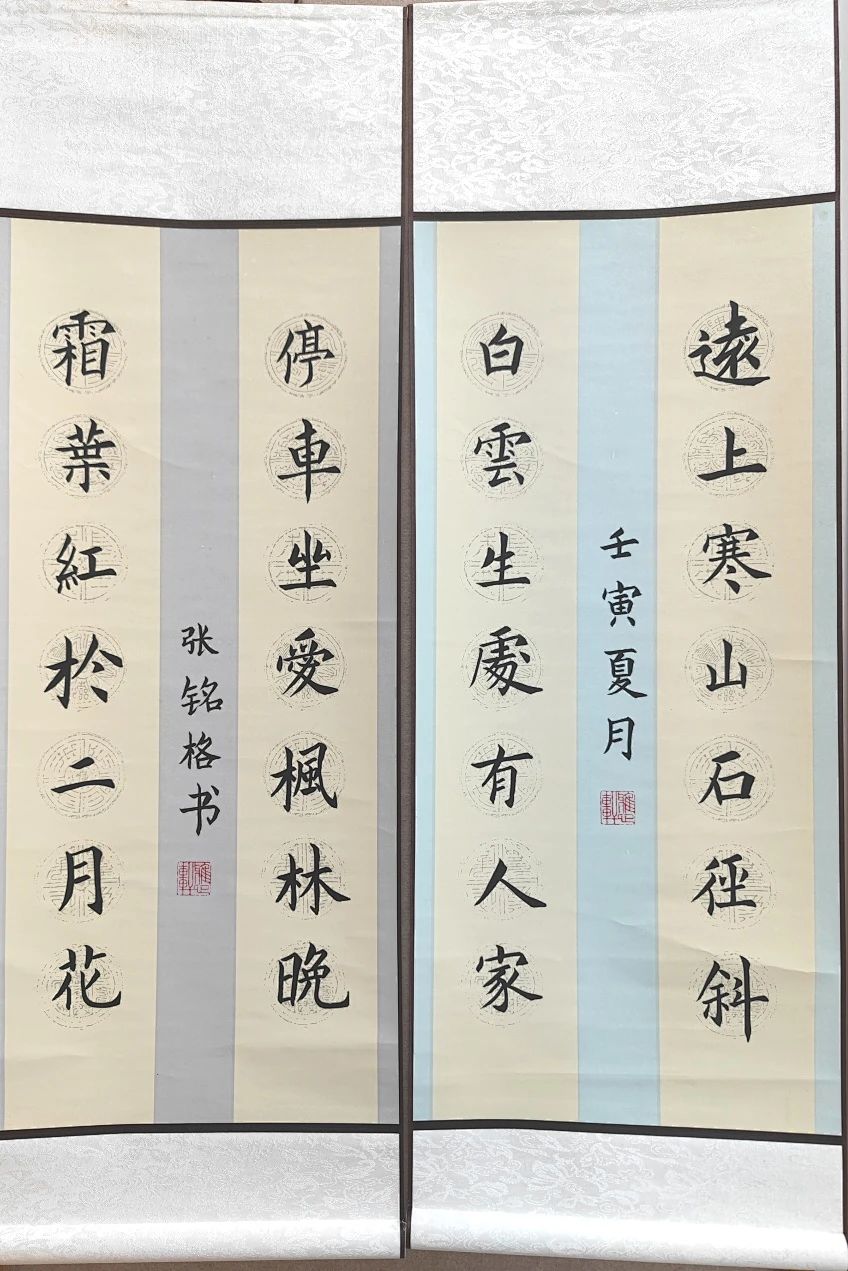 遠上寒山石徑斜
壬寅夏月
白雲生處有人家
停車坐愛楓林晚
张铭格书
霜葉紅於二月花